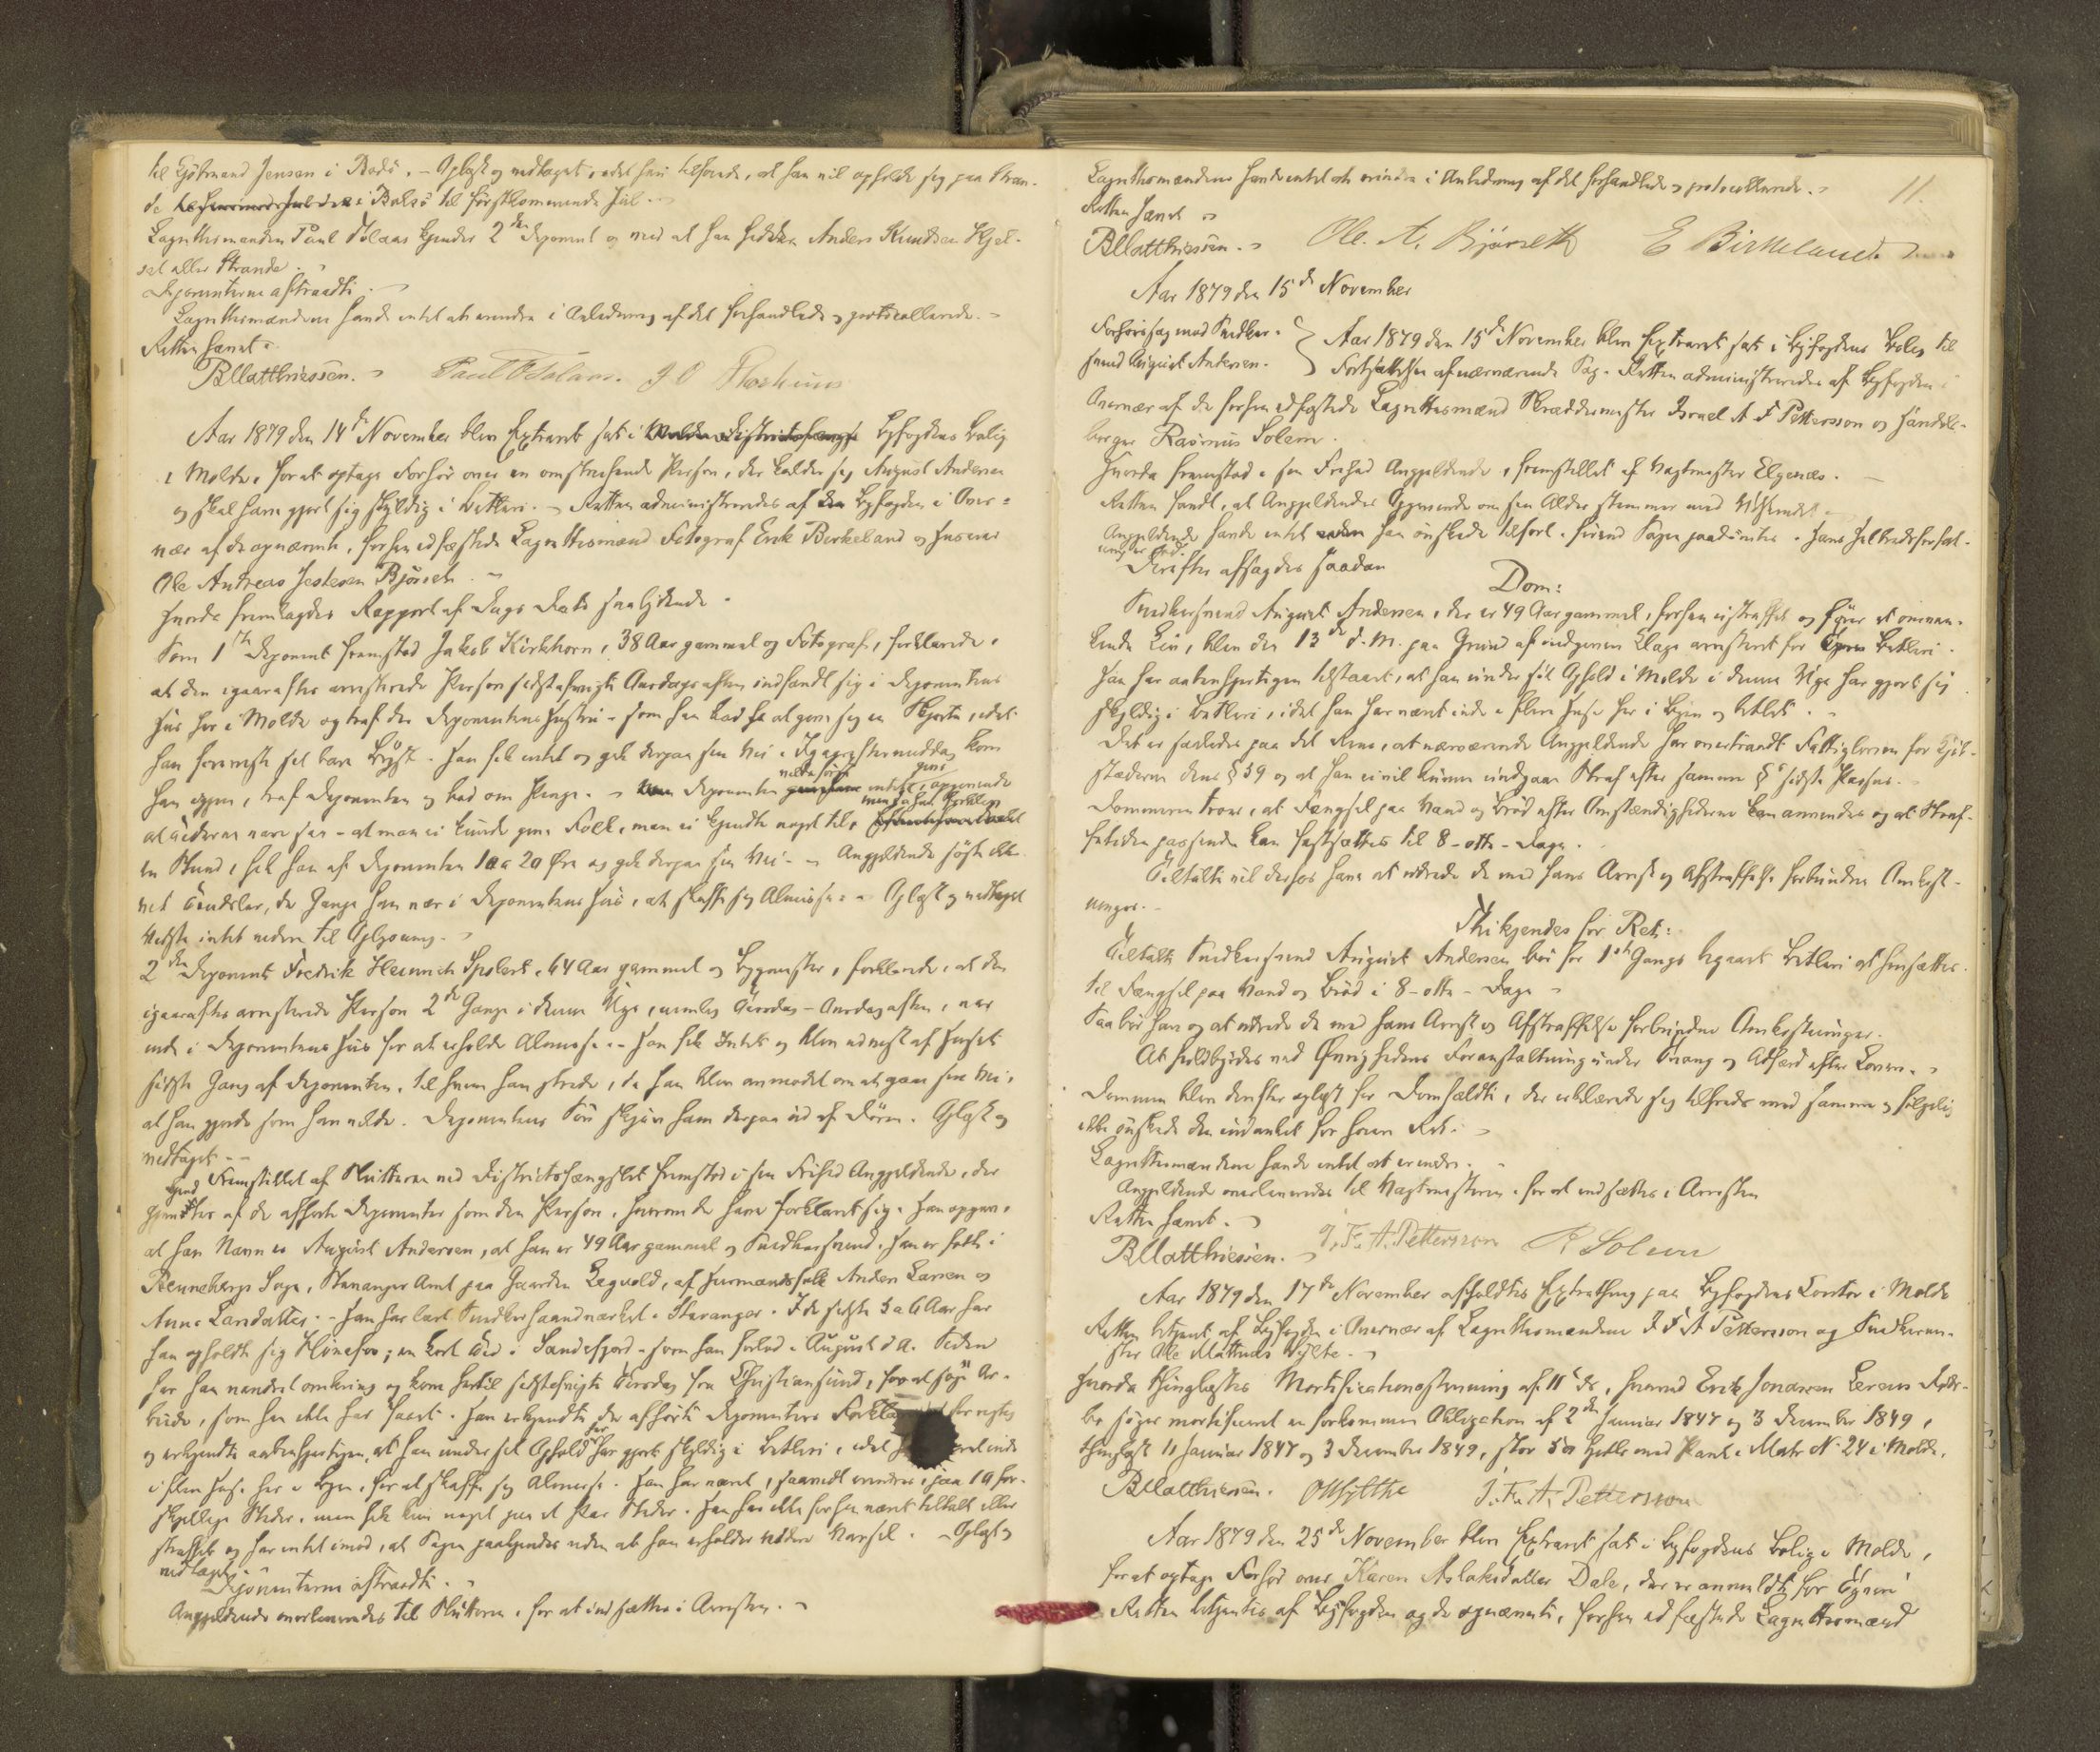 til Kjøbmand Jensen i Bodø. – Oplæst og vedtaget, idet han tilføiede, at han vil opholde sig paa Stran-
de i Bolsø til førstkommende Jul. –
Lagrettesmanden Paul Tolaas kjender 2den Deponent og ved at han hedder Anders Knudsen Hjel-
set eller Strande.
Deponenterne aftraadte.
Lagrettesmændene havde intet at erindre i Anledning af det forhandlede og protocollerede. –
Retten hævet.
BMatthiessen. – Paul O Tolaas. J O
Aar 1879 den 14de November blev Extraret sat i Byfogdens Bolig
i Molde, for at optage Forhør over en omstreifende Person, der kalder sig August Andersen
og skal have gjort sig skyldig i Betleri. – Retten administreredes af Byfogden i Over-
vær af de opnævnte, forhen edfæstede Lagrettesmænd Fotograf Erik Birkeland og Huseier
Ole Andreas Bjørseth. –
Hvorda fremlagdes Rapport af Dags Dato saalydende.
Som 1ste Deponent fremstod Jakob Kirkhorn, 38 Aar gammel og Fotograf, forklarede,
at den igaaraftes arresterede Person sidstafvigte Aftes indfandt sig i Deponentens
Hus her i Molde og traf der Deponentens Hustru – som han bad om at give sig en Skjorte, idet
han foreviste sit bare Bryst. Han fik intet og gik derpaa sin Vei. Igaareftermiddag kom
han igjen, traf Deponenten og bad om Penge. – Deponenten vilde først intet give, opgivende
at Tiderne vare saa – at man ei kunde give Folk, man ei kjendte noget til,
en Stund, fik han af Deponenten 10 a 20 Øre og gik derpaa sin Vei. – Angjeldende søgte
ved Gange han var i Deponentens Hus, at skaffe sig Almisse. – Oplæst og vedtaget
Vidste intet videre til Oplysning. –
2den Deponent Fredrik Heinrich, 64 Aar gammel og Bygmester, forklarede, at den
igaaraftes arresterede Person 2de Gange i denne Uge, nemlig Tirsdag – Onsdagaften, var
inde i Deponentens Hus for at erholde Almisse. – Han fik Intet og blev udvist af Huset
sidste Gang af Deponenten, til hvem han sagde, da han blev anmodet om at gaa sin Vei,
at han gjorde som han vilde. Deponentens Søn skjøv ham derpaa ud af Døren. Oplæst og
vedtaget. –
Fremstillet af Slutteren ved Districtsfængslet fremstod i sin Frihed Angjeldende, der
gjenkjendtes af de afhørte Deponenter som den Person, hvorom de have forklaret sig. Han opgav,
at hans Navn er August Andersen, at han er 49 Aar gammel og Snedkersvend. Han er født i
Rennebergs Sogn, Stavanger Amt paa Gaarden, af Husmandsfolk Anders Larsen og
Anne Larsdatter. – Han har lært Snedkerhaandværket i Stavanger. I de sidste 5 a 6 Aar har
han opholdt sig Hønefos; en kort Tid i Sandefjord – som han forlod i August d. A. Siden
har han vandret omkring og kom hertil sidstafvigte Tirsdag fra Christiansund, for at søge Ar-
beide, som han ikke har faaet. Han erkjendte de afhørte Deponenters for rigtig
og erkjendte aabenhjertigen, at han under sit Ophold her har gjort skyldig i Betleri, idet inde
i flere Huse her i Byen, for at skaffe sig Almisse. Han har været, saavidt erindres, paa 10 for-
skjellige Steder, men fik kun noget paa et Par Steder. Han har ikke forhen været tiltalt eller
straffet og har intet imod, at Sagen paakjendes uden at han erholder videre Varsel. – Oplæst og
vedtaget.
Deponenterne aftraadte. –
Angjeldende overleveredes til Slutteren, for at indsættes i Arresten. –
11.
Lagrettesmændene havde intet at erindre i Anledning af det forhandlede og protocollerede. –
Retten hævet. –
BMatthiessen. – Ole. A. Bjørseth E Birkeland
Aar 1879 den 15de November
Forhørssag mod Snedker-
svend August Andersen.
Aar 1879 den 15de November blev Extraret sat i Byfogdens Bolig til
Fortsættelse af nærværende Sag. Retten administreredes af Byfogden i
Overvær af de forhen edfæstede Lagrettesmænd Skræddermester Israel A F Pettersson og Handels-
borger Rasmus Solem.
Hvorda fremstod i sin Frihed Angjeldende, fremstillet af Vagtmester Elgenæs. –
Retten fandt, at Angjeldendes Opgivende om sin Alder stemmer med Udseendet. –
Angjeldende havde intet han ønskede tilført, førend Sagen paadømtes. Hans
Derefter afsagdes saadan
Dom:
Snedkersvend August Andersen, der er 49 Aar gammel, forhen ustraffet og fører et omvan-
kende Liv, blev den 13de d. M. paa Grund af indgiven Klage arresteret for Betleri.
Han har aabenhjertigen tilstaaet, at han under sit Ophold i Molde i denne Uge har gjort sig
skyldig i Betleri, idet han har været inde i flere Huse her i Byen og betlet. –
Det er saaledes paa det Rene, at nærværende Angjeldende har overtraadt Fattigloven for Kjøb-
stæderne dens § 59 og at han ei vil kunne undgaa Straf efter samme §'s sidste Passus. –
Dommeren troer, at Fængsel paa Vand og Brød efter Omstændighederne kan anvendes og at Straf-
fetiden passende kan fastsættes til 8 – otte – Dage.
Tiltalte vil derhos have at udrede de med hans Arrest og Afstraffelse forbundne Omkost-
ninger. –
Thi kjendes for Ret:
Tiltalte Snedkersvend August Andersen bør for 1ste Gangs begaaet Betleri at hensættes
til Fængsel paa Vand og Brød i 8 – otte – Dage –
Saa bør han og at udrede de med hans Arrest og Afstraffelse forbundne Omkostninger.
At fuldbyrdes ved Øvrighedens Foranstaltning under Tvang og Adfærd efter Loven. –
Dommen blev derefter oplæst for Domfældte, der erklærede sig tilfreds med samme og følgelig
ikke ønskede den indanket for høiere Ret. –
Lagrettesmændene havde intet at erindre. –
Angjeldende overleveredes til Vagtmesteren, for at indsættes i Arresten
Retten hævet. –
BMatthiessen. – J. F. A. Pettersson R Solem
Aar 1879 den 17de November afholdtes Extrathing paa Byfogdens Contor i Molde
Retten betjent af Byfogden i Overvær af Lagrettesmændene J F A Pettersson og Snedkerme-
ster Ole Mathias Hjelte. –
Hvorda thinglæstes Mortificationsstevning af 11te ds, hvorved Erik Jonassen
søger mortificeret en forkommen Obligation af 2den Januar 1847 og 3 December 1849,
thinglæst 11 Januar 1847 og 3 December 1849, stor 50 med Pant i Matr N. 24 i Molde.
BMatthiessen. OMHjelthe J. F. A. Pettersson
Aar 1879 den 25de November blev Extraret sat i Byfogdens Bolig i Molde,
for at optage Forhør over Karen Aslaksdatter Dale, der er anmeldt for Tyveri
Retten betjentes af Byfogden og de opnævnte, forhen edfæstede Lagrettesmænd